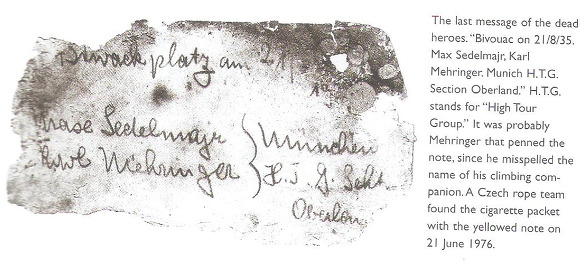 Biwackplatz am 21/
Maxe Sedelmajr
Karl Mehringer
München
H.T.G. Sekt.
Oberlan
The last message of the dead
heroes. “Bivouac on 21/8/35.
Max Sedelmajr, Karl
Mehringer. Munich H.T.G.
Section Oberland.” H.T.G.
stands for “High Tour
Group.” It was probably
Mehringer that penned the
note, since he misspelled the
name of his climbing com-
panion. A Czech rope team
found the cigarette packet
with the yellowed note on
21 June 1976.